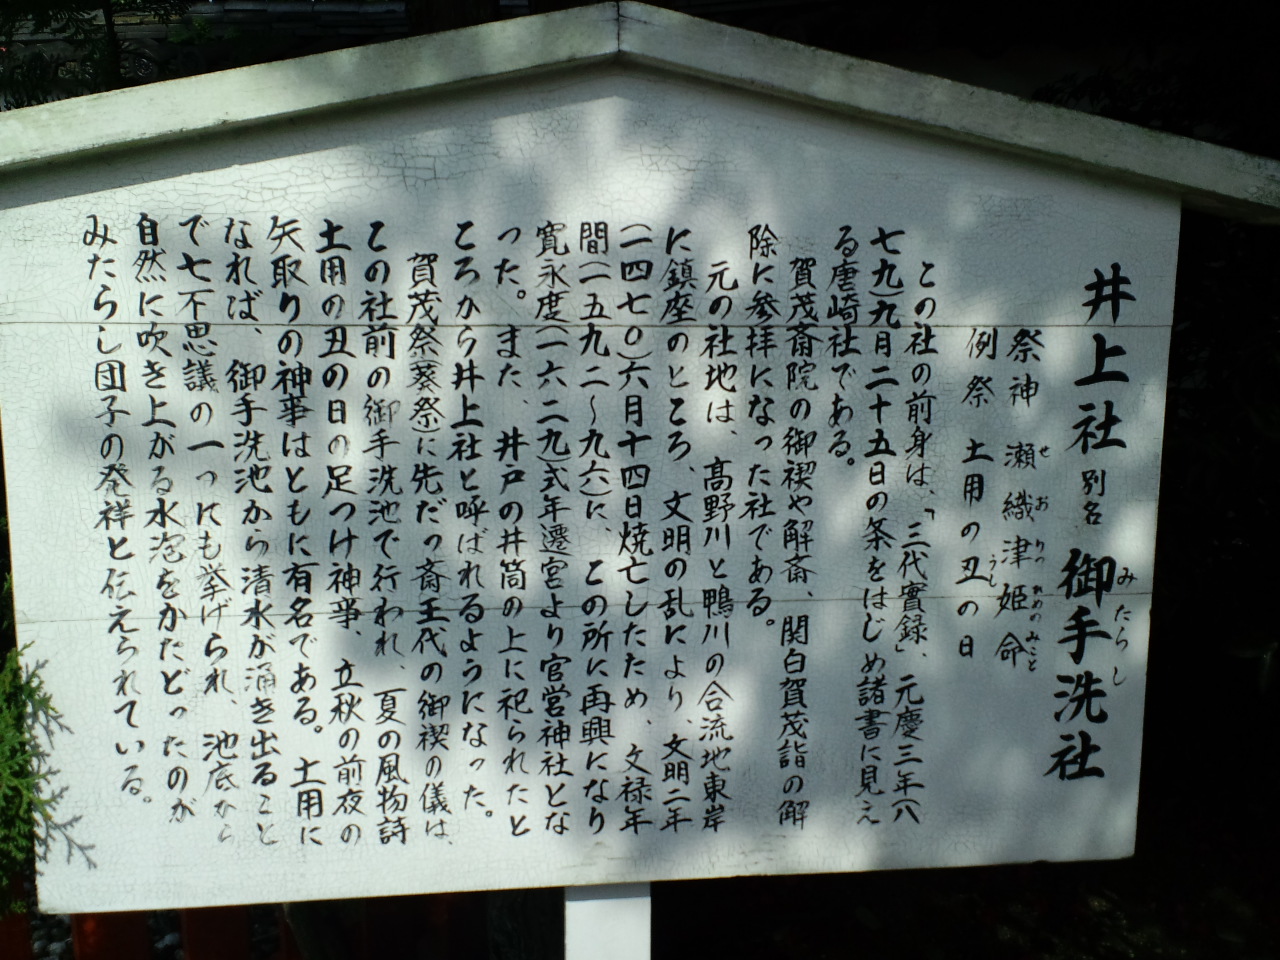 井上社 別名 御手洗社
みたらし
祭神 瀬織津姫命
せおりつひめのみこと
例祭 土用の丑の日
うし
この社の前身は、「三代實録」、元慶三年(八
七九)九月二十五日の条をはじめ諸書に見え
る唐崎社である。
賀茂斎院の御禊や解斎、関白賀茂詣の解
除に参拝になった社である。
元の社地は、高野川と鴨川の合流地東岸
に鎮座のところ、文明の乱により、文明二年
(一四七〇)六月十四日焼亡したため、文禄年
間(一五九二～九六)に、この所に再興になり
寛永度(一六二九)式年遷宮より官営神社とな
った。また、井戸の井筒の上に祀られたと
ころから井上社と呼ばれるようになった。
賀茂祭(葵祭)に先だつ斎王代の御禊の儀は、
この社前の御手洗池で行われ、夏の風物詩
土用の丑の日の足つけ神事、立秋の前夜の
矢取りの神事はともに有名である。土用に
なれば、御手洗池から清水が涌き出ること
で七不思議の一つにも挙げられ、池底から
自然に吹き上がる水泡をかたどったのが
みたらし団子の発祥と伝えられている。